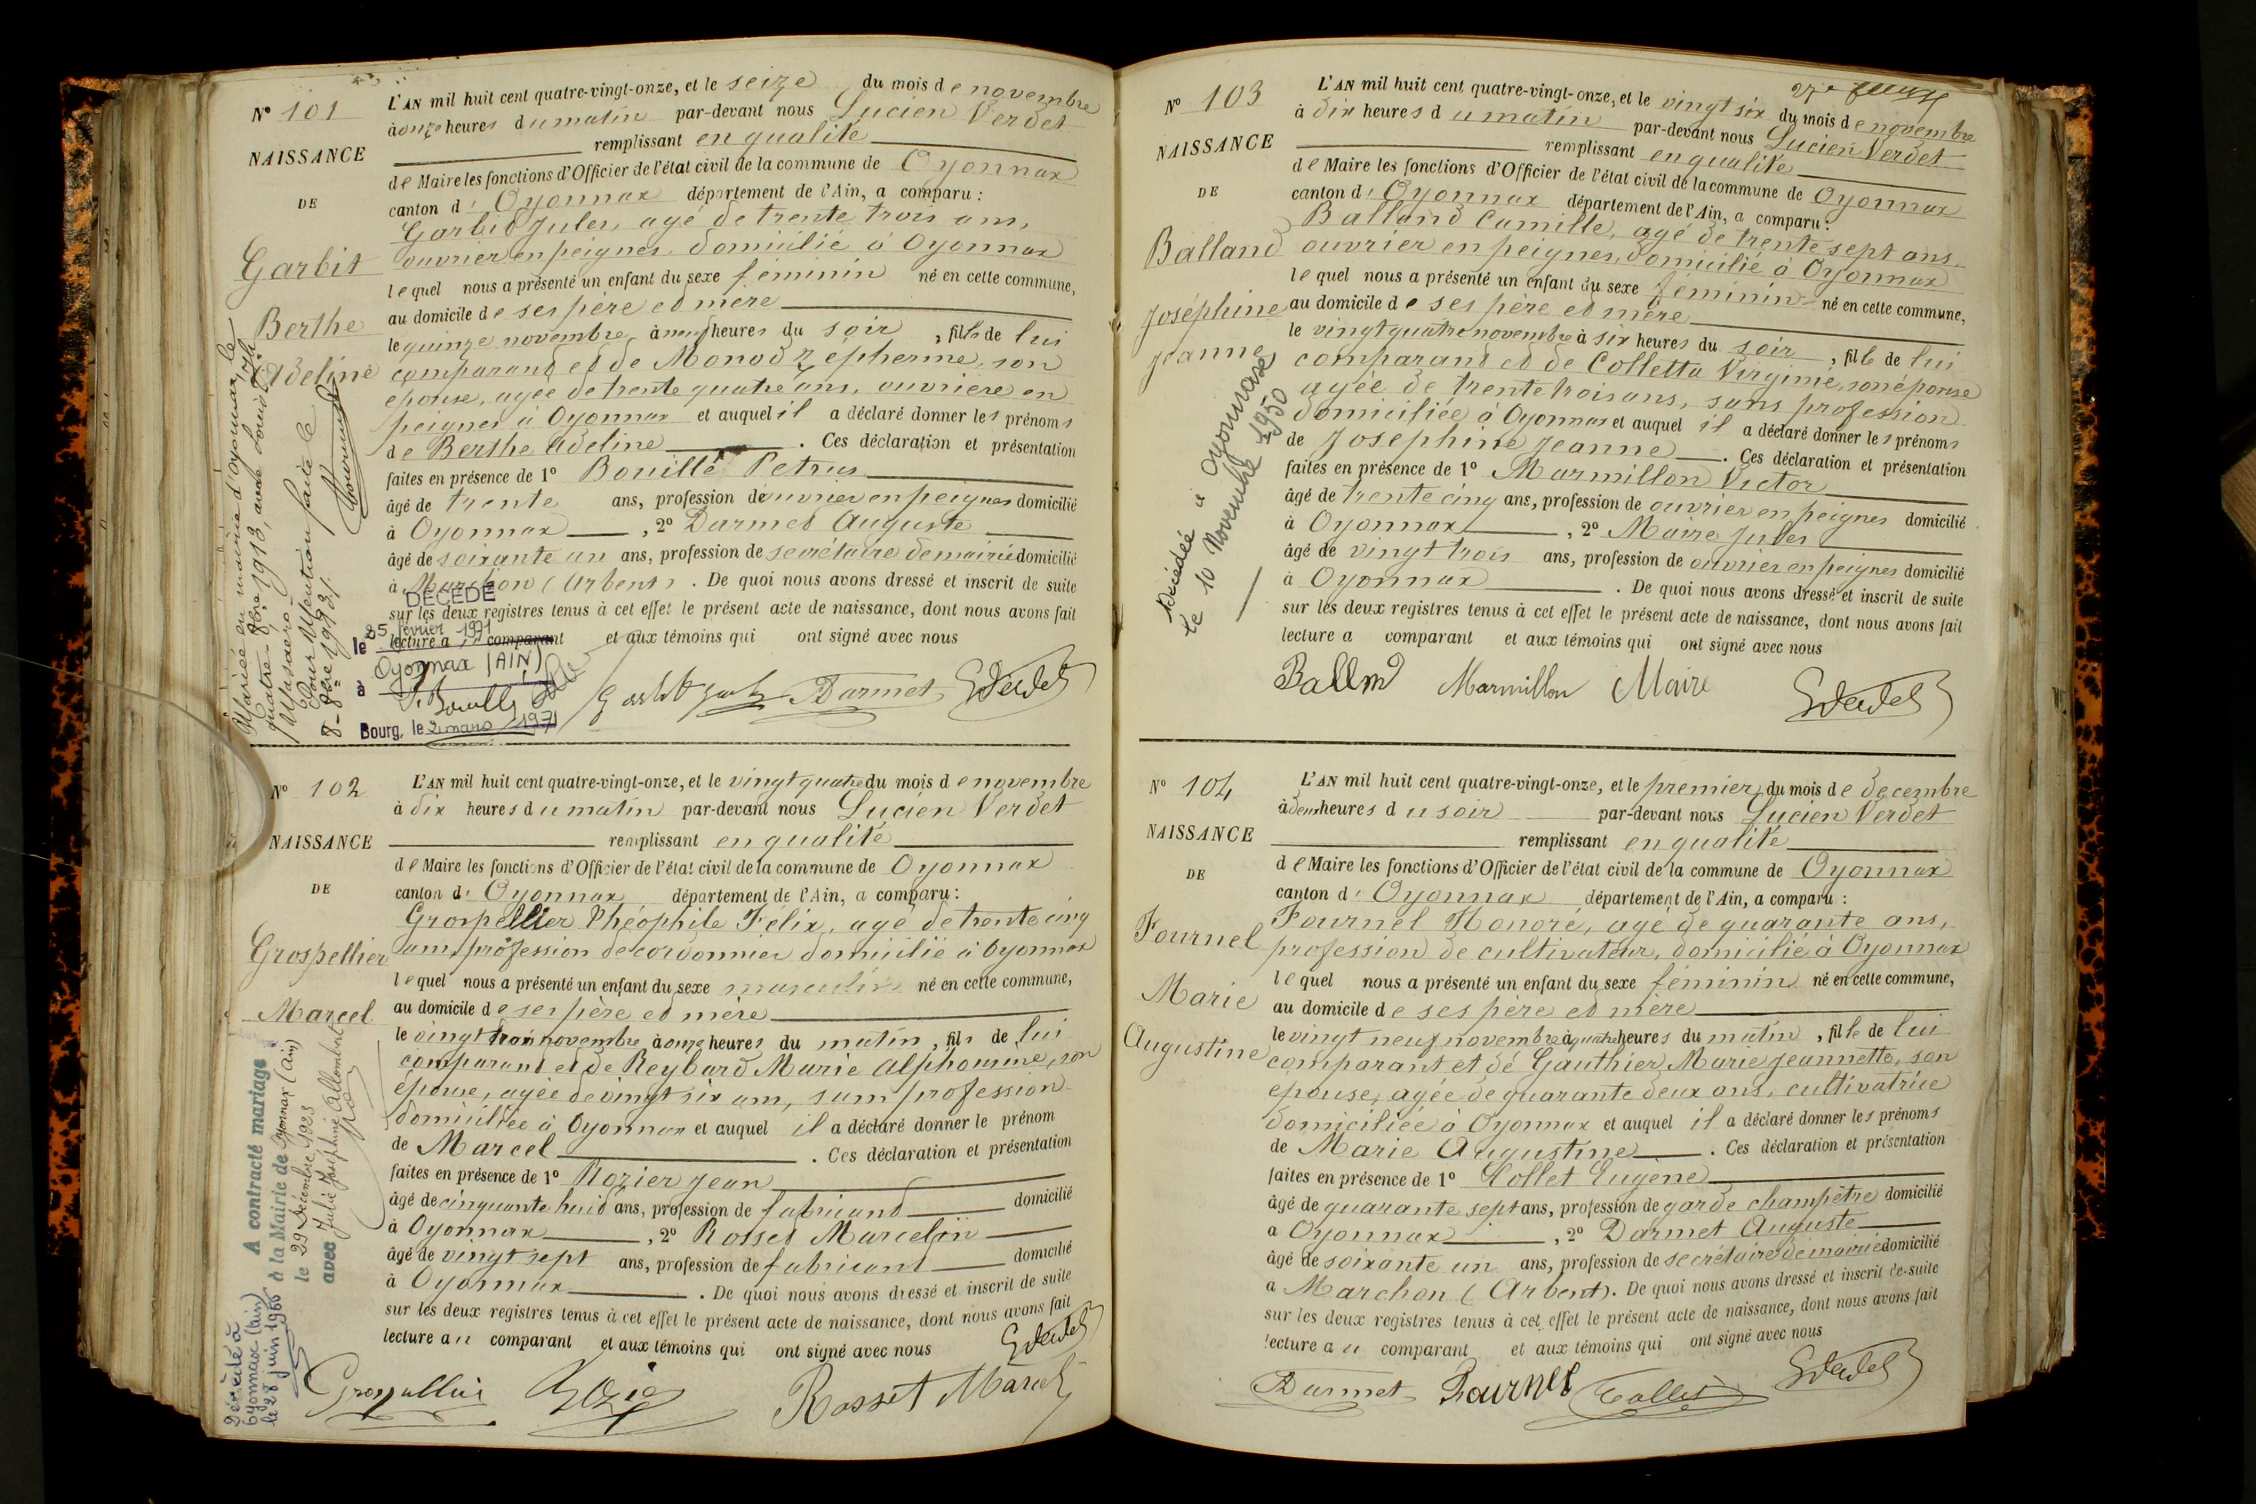 N° 101
NAISSANCE
DE
Garbit
Berthe
Adeline
L'AN mil huit cent quatre-vingt-onze, et le seize du mois de novembre
à onze heures du matin par-devant nous Lucien Verdet
remplissant en qualité
de Maire les fonctions d'Officier de l'état civil de la commune de Oyonnax
canton d' Oyonnax département de l'Ain, a comparu :
Garbit Jules, agé de trente trois ans,
ouvrier en peignes domicilié à Oyonnax
lequel nous a présenté un enfant du sexe féminin né en cette commune,
au domicile de ses père et mère
le quinze novembre, à neuf heures du soir, fille de lui
comparant et de Monod Zépherine, son
épouse, agée de trente quatre ans, ouvrière en
peignes à Oyonnax et auquel il a déclaré donner les prénoms
de Berthe Adeline. Ces déclaration et présentation
faites en présence de 1° Bouillé Petrus
âgé de trente ans, profession de ouvrier en peignes domicilié
à Oyonnax, 2° Darmet Auguste
âgé de soixante un ans, profession de secrétaire de mairie domicilié
à Marchon (Arbent). De quoi nous avons dressé et inscrit de suite
sur les deux registres tenus à cet effet le présent acte de naissance, dont nous avons fait
lecture au comparant et aux témoins qui ont signé avec nous
Mariée en mairie d'Oyonnax, le
quatre 8bre 1913, avec Louis
Pour Mention faite le
8 - 8bre 1913.
DÉCÉDÉ
le 25 février 1971
à Oyonnax (AIN)
Bourg, le 2 mars 1971
P. Bouillé Garbit Jules Darmet L Verdet
N° 102
NAISSANCE
DE
Grospellier
Marcel
L'AN mil huit cent quatre-vingt-onze, et le vingt quatre du mois de novembre
à dix heures du matin par-devant nous Lucien Verdet
remplissant en qualité
de Maire les fonctions d'Officier de l'état civil de la commune de Oyonnax
canton d' Oyonnax département de l'Ain, a comparu :
Grospellier Théophile Félix, agé de trente cinq
ans, profession de cordonnier domicilié à Oyonnax
lequel nous a présenté un enfant du sexe masculin né en cette commune,
au domicile de ses père et mère
le vingt trois novembre, à onze heures du matin, fils de lui
comparant et de Reybard Marie Alphonsine, son
épouse, agée de vingt six ans, sans profession
domiciliée à Oyonnax et auquel il a déclaré donner le prénom
de Marcel. Ces déclaration et présentation
faites en présence de 1° Rozier Jean
âgé de cinquante huit ans, profession de fabricant domicilié
à Oyonnax, 2° Rosset Marcelin
âgé de vingt sept ans, profession de fabricant domicilié
à Oyonnax. De quoi nous avons dressé et inscrit de suite
sur les deux registres tenus à cet effet le présent acte de naissance, dont nous avons fait
lecture au comparant et aux témoins qui ont signé avec nous
A contracté mariage
à la Mairie de Oyonnax (Ain)
le 29 Décembre 1923
avec Julie Joséphine Allombert
Décédé à
Oyonnax (Ain)
le 28 juin 1966
Grospellier Rozier Rosset Marcelin L Verdet
N° 103
NAISSANCE
DE
Balland
Joséphine
Jeanne
L'AN mil huit cent quatre-vingt-onze, et le vingt six du mois de novembre
à dix heures du matin par-devant nous Lucien Verdet
remplissant en qualité
de Maire les fonctions d'Officier de l'état civil de la commune de Oyonnax
canton d' Oyonnax département de l'Ain, a comparu :
Balland Camille, agé de trente sept ans,
ouvrier en peignes, domicilié à Oyonnax
lequel nous a présenté un enfant du sexe féminin né en cette commune,
au domicile de ses père et mère
le vingt quatre novembre à six heures du soir, fille de lui
comparant et de Colletta Virginie, son épouse
agée de trente trois ans, sans profession
domiciliée à Oyonnax et auquel il a déclaré donner les prénoms
de Joséphine Jeanne. Ces déclaration et présentation
faites en présence de 1° Marmillon Victor
âgé de trente cinq ans, profession de ouvrier en peignes domicilié
à Oyonnax, 2° Maire Jules
âgé de vingt trois ans, profession de ouvrier en peignes domicilié
à Oyonnax. De quoi nous avons dressé et inscrit de suite
sur les deux registres tenus à cet effet le présent acte de naissance, dont nous avons fait
lecture a comparant et aux témoins qui ont signé avec nous
Décédée à Oyonnax
le 10 Novembre 1950
Balland Marmillon Maire L Verdet
N° 104
NAISSANCE
DE
Fournel
Marie
Augustine
L'AN mil huit cent quatre-vingt-onze, et le premier du mois de decembre
à deux heures du soir par-devant nous Lucien Verdet
remplissant en qualité
de Maire les fonctions d'Officier de l'état civil de la commune de Oyonnax
canton d' Oyonnax département de l'Ain, a comparu :
Fournel Honoré, agé de quarante ans,
profession de cultivateur, domicilié à Oyonnax
lequel nous a présenté un enfant du sexe féminin né en cette commune,
au domicile de ses père et mère
le vingt neuf novembre à quatre heures du matin, fille de lui
comparant et de Gauthier Marie Jeannette, son
épouse, agée de quarante deux ans, cultivatrice
domiciliée à Oyonnax et auquel il a déclaré donner les prénoms
de Marie Augustine. Ces déclaration et présentation
faites en présence de 1° Collet Eugène
âgé de quarante sept ans, profession de garde champêtre domicilié
à Oyonnax, 2° Darmet Auguste
âgé de soixante un ans, profession de secrétaire de mairie domicilié
a Marchon (Arbent). De quoi nous avons dressé et inscrit de suite
sur les deux registres tenus à cet effet le présent acte de naissance, dont nous avons fait
lecture au comparant et aux témoins qui ont signé avec nous
Darmet Fournel Collet L Verdet